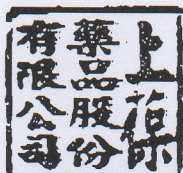 上葆
藥品股份
有限公司